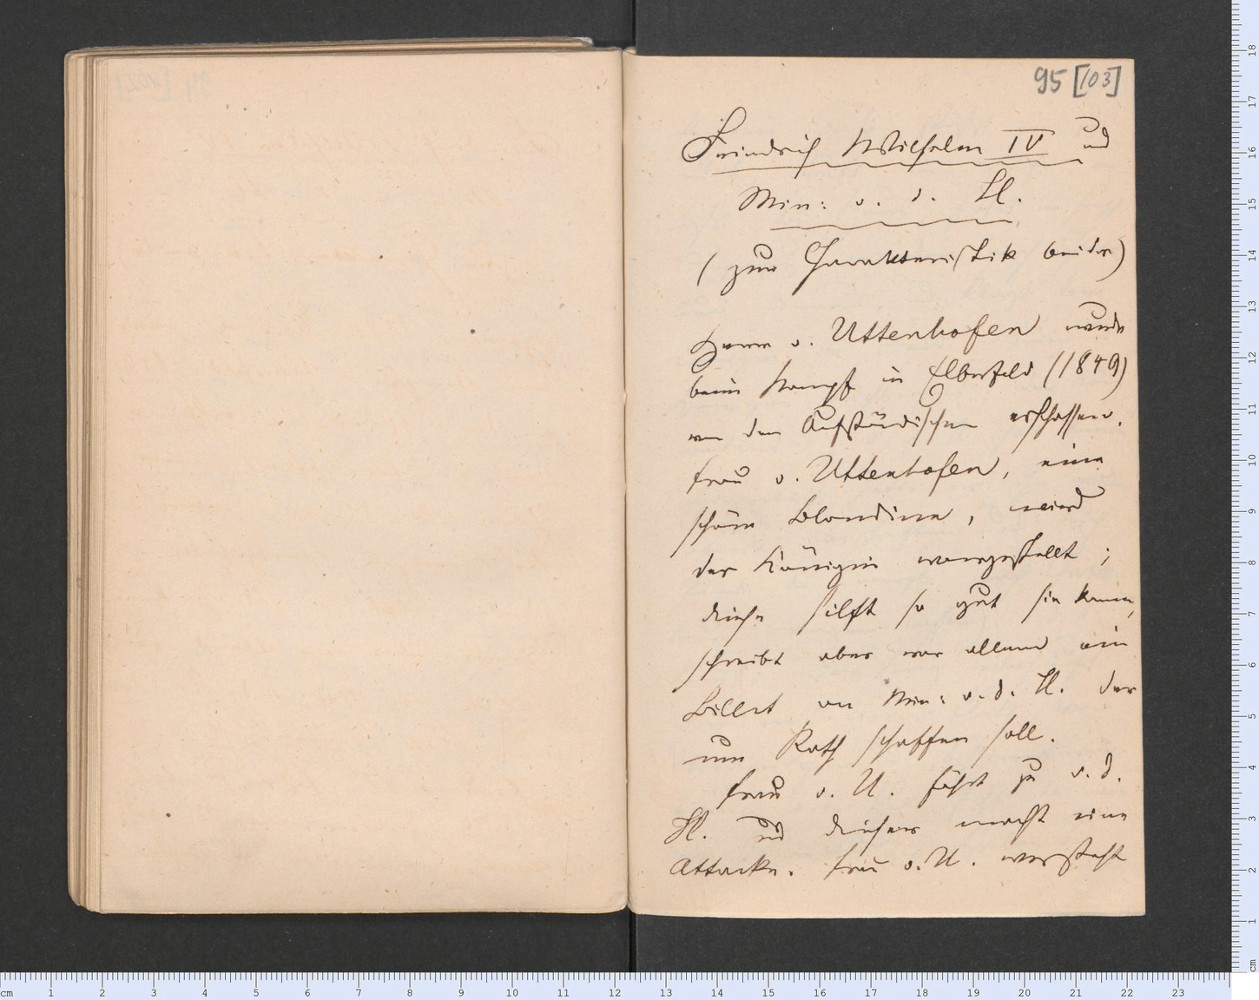 95 [103]
Friedrich Wilhelm IV und
Min: v. d. H.
(zur Charakteristik beider)
Herr v. Uttenhofen wurde
beim Kampf in Elberfeld (1849)
von den Aufständischen erschossen.
Frau v. Uttenhofen, eine
schöne Blondine, wird
der Königin vorgestellt;
diese hilft so gut sie kann,
schreibt aber vor allem ein
Billet an Min: v. d. H. der
nun Rath schaffen soll.
Frau v. U. fährt zu v. d.
H. und dieser macht eine
Attacke. Frau v. U. versteht